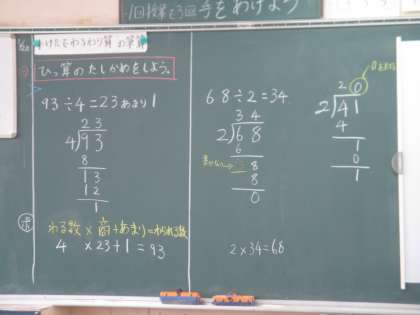 1回授業で3回手をあげよう
わり算の筆算
ひっ算のたしかめをしよう。
93÷4=23あまり1
23
4)93
8
13
12
1
わる数×商+あまり=わられる数
4×23+1=93
68÷2=34
34
2)68
6
8
8
0
2×34=68
20
2)41
4
1
0
1